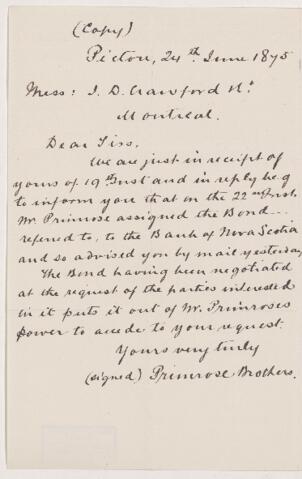 (Copy)
Pictou, 24th June 1875
Mess: J. D. Crawford &
Montreal.
Dear Sirs.
We are just in receipt of
yours of 19th Inst and in reply beg
to inform you that on the 22nd Inst.
Mr. Primrose assigned the Bond
referred to, to the Bank of Nova Scotia
and so advised you by mail yesterday
The Bond having been negotiated
at the request of the parties interested
in it puts it out of Mr. Primroses
power to accede to your request.
Yours very truly
(signed) Primrose Brothers.